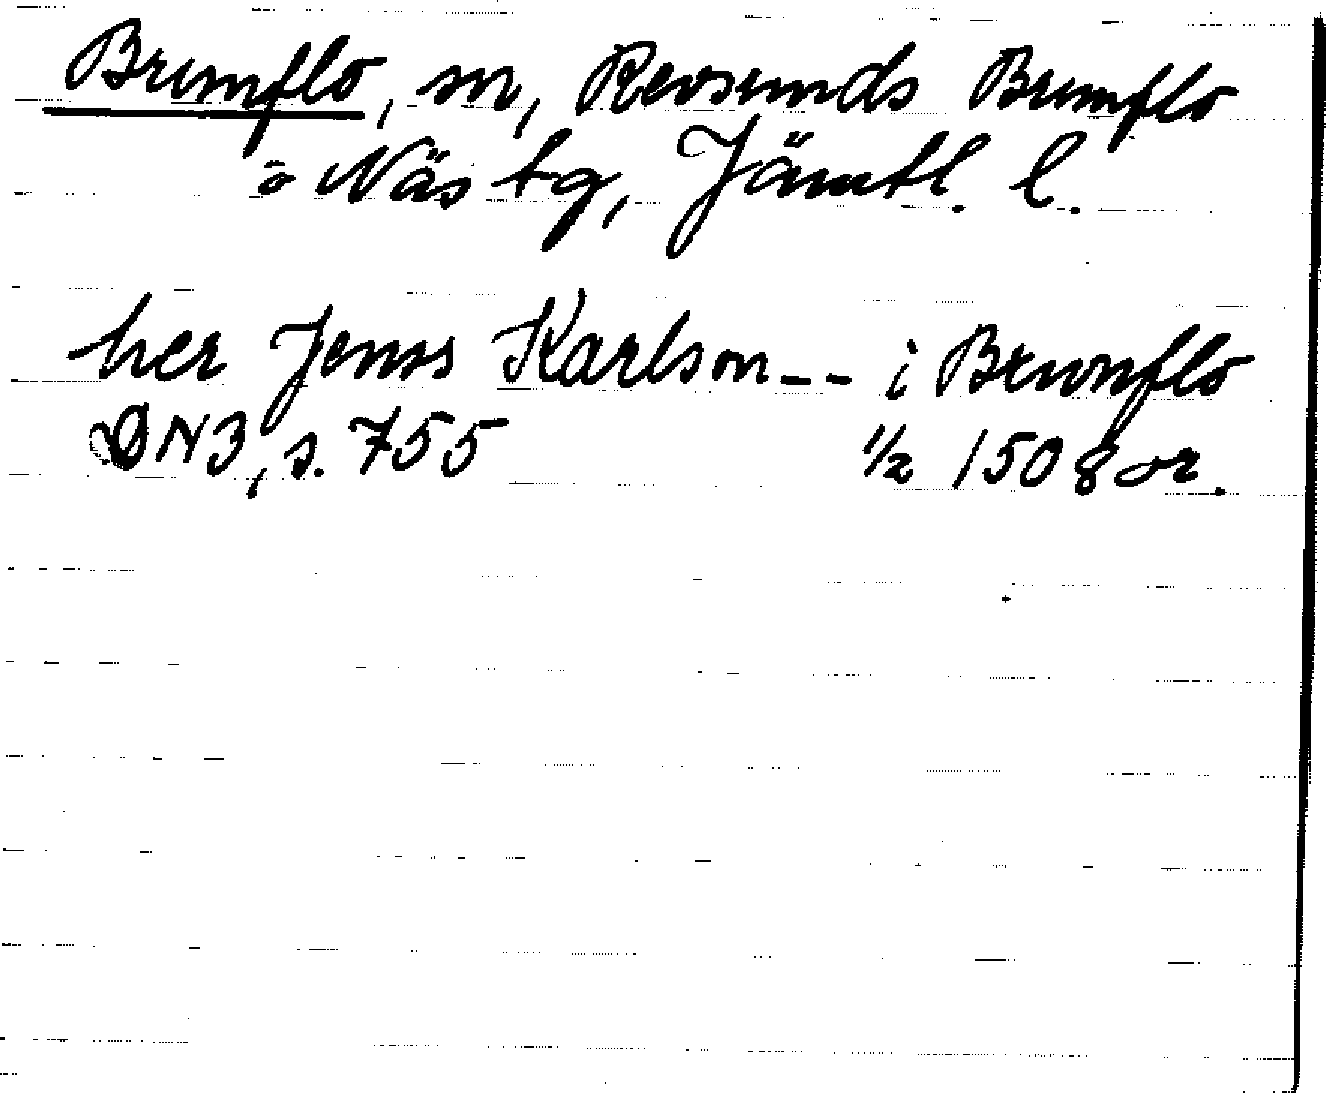 Brunflo, sn, Revsunds Brunflo
o Näs tg, Jämtl. l.
her Jenss Karlson -- i Brwnflo
DN3, s. 755 1/2 1508 or.